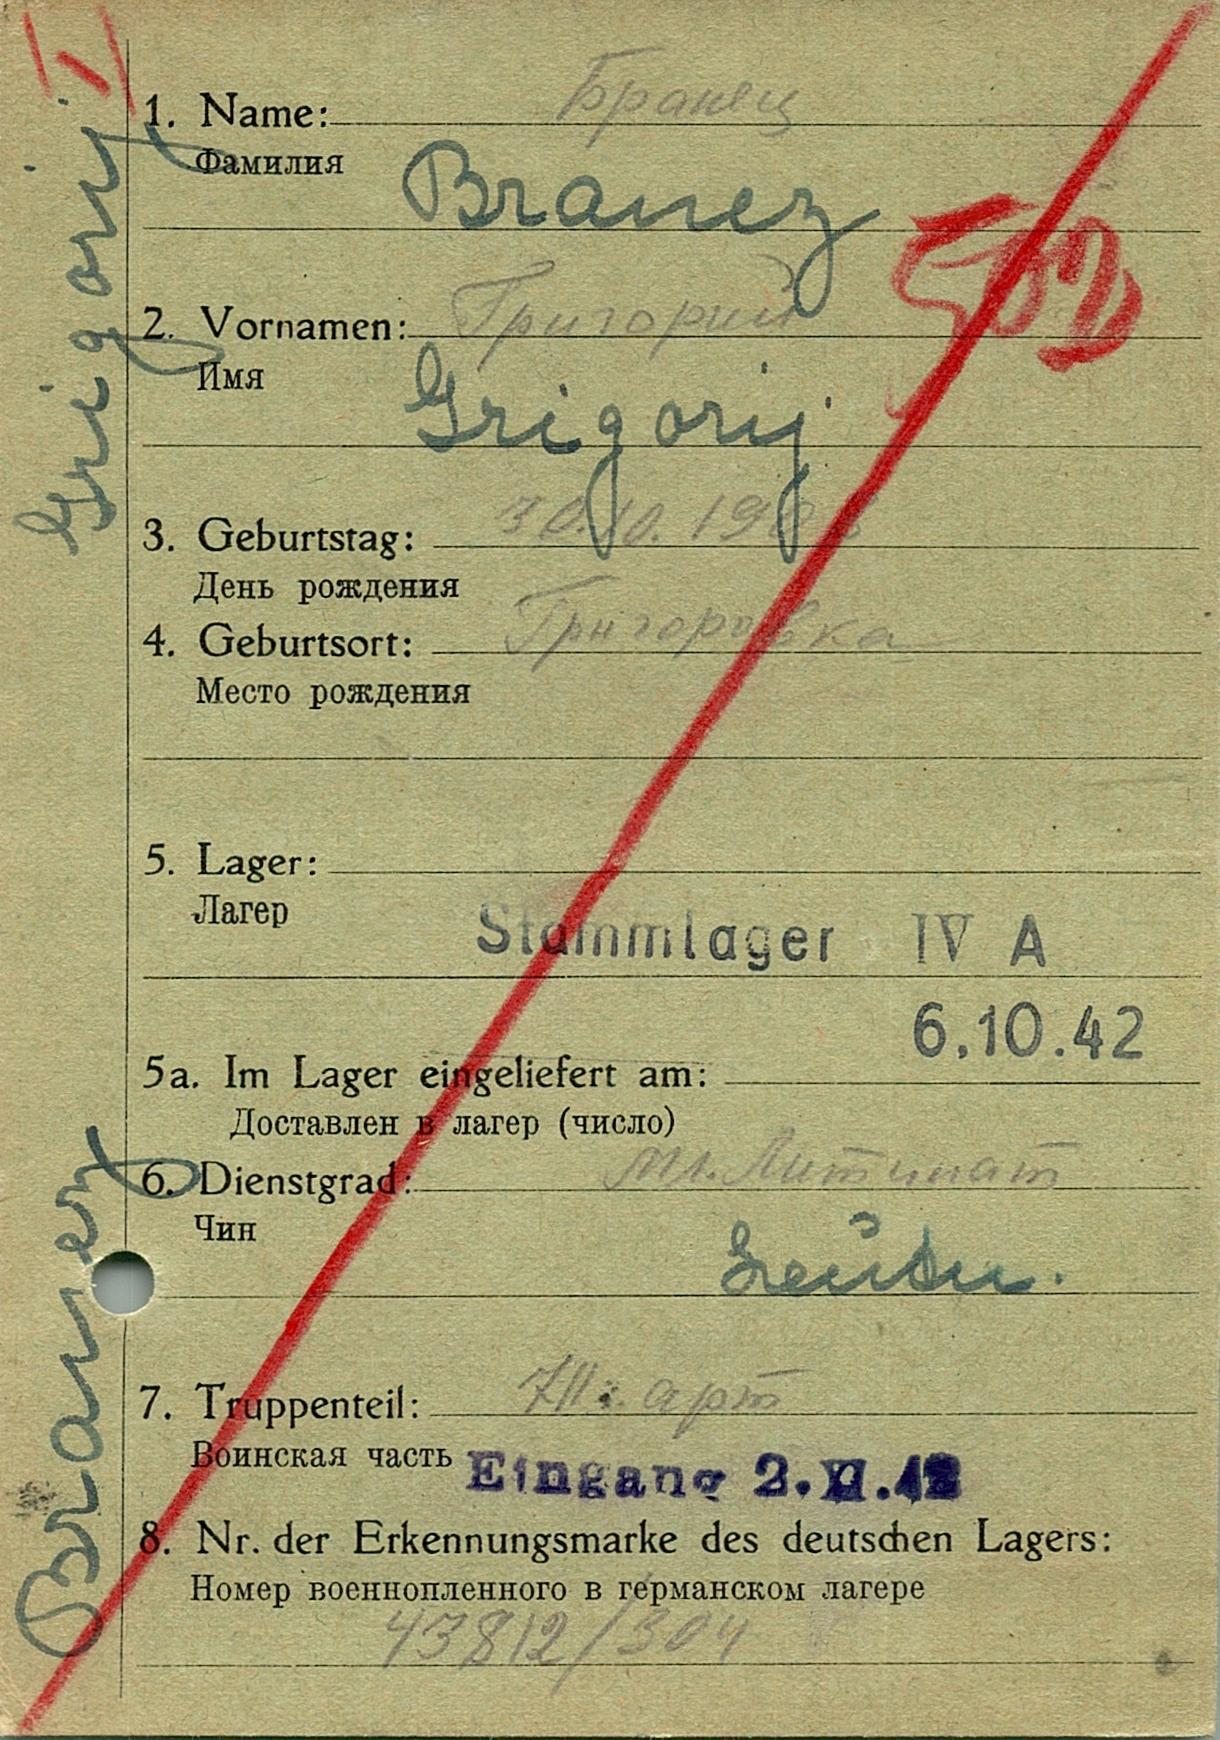 1. Name: Бранец
Фамилия
Branez
2. Vornamen: Григорий
Имя
Grigorij
3. Geburtstag: 30.10.19
День рождения
4. Geburtsort: Григоровка
Место рождения
5. Lager:
Лагер
Stammlager IV A
6.10.42
5a. Im Lager eingeliefert am:
Доставлен в лагер (число)
6. Dienstgrad: мл.
Чин
7. Truppenteil: арт
Воинская часть Eingang 2. .42
8. Nr. der Erkennungsmarke des deutschen Lagers:
Номер военнопленного в германском лагере
43812/304
Branez Grigorij